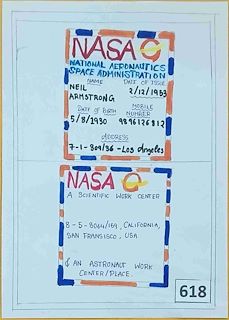 NASA
NATIONAL AERONAUTICS
SPACE ADMINISTRATION
NAME DATE OF ISSUE
NEIL 2/12/1953
ARMSTRONG MOBILE
DATE OF BIRTH NUMBER
5/8/1930 9896126812
ADDRESS
7-1-809/36-Los Angeles
NASA
A SCIENTIFIC WORK CENTER
8-5-8044/169, CALIFORNIA,
SAN FRANSISCO, USA
& AN ASTRONAUT WORK
CENTER/PLACE.
618